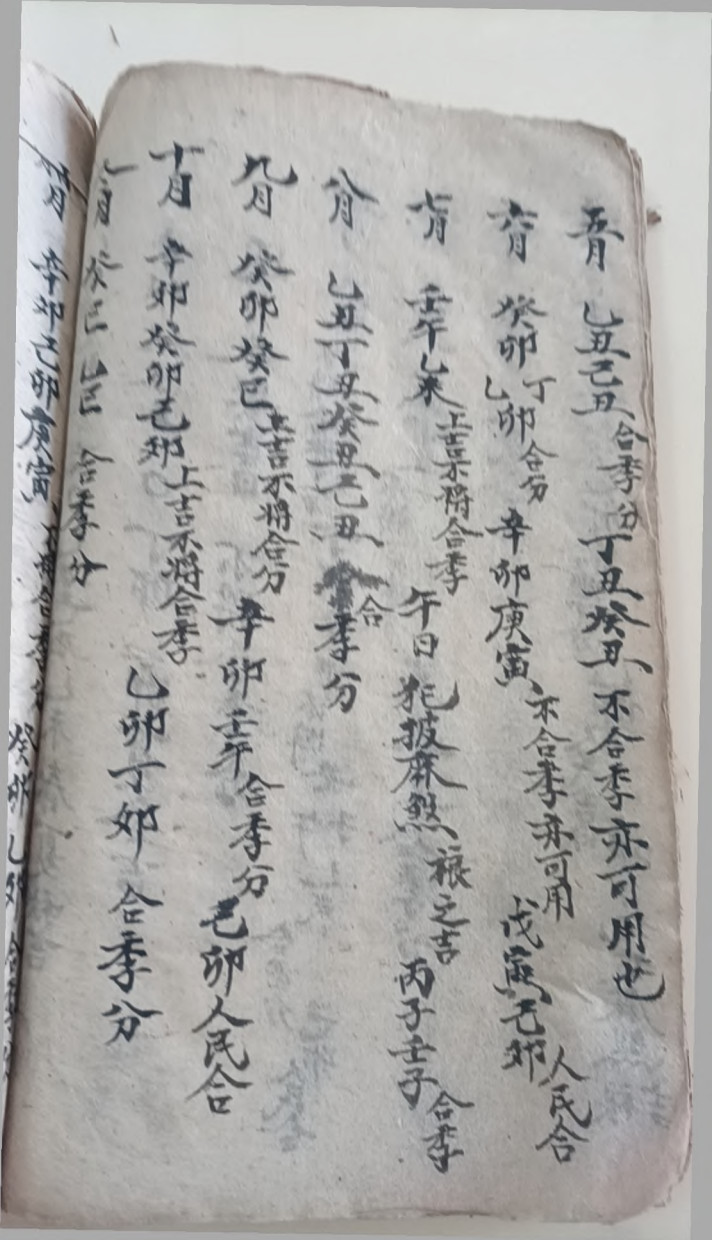 五月 乙丑己丑合季分丁丑癸丑不合季亦可用也
六月 癸卯丁卯乙卯合分辛卯庚寅不合季亦可用戊寅己卯人民合
七月 壬午乙未上吉不將合季午日犯披麻煞禳之吉丙子壬子合季
八月 乙丑丁丑癸丑己丑合季分
九月 癸卯癸巳上吉不將合分辛卯壬午合季分己卯人民合
十月 辛卯癸卯己卯上吉不將合季乙卯丁卯合季分
月 癸巳乙巳合季分
月 辛卯己卯庚寅